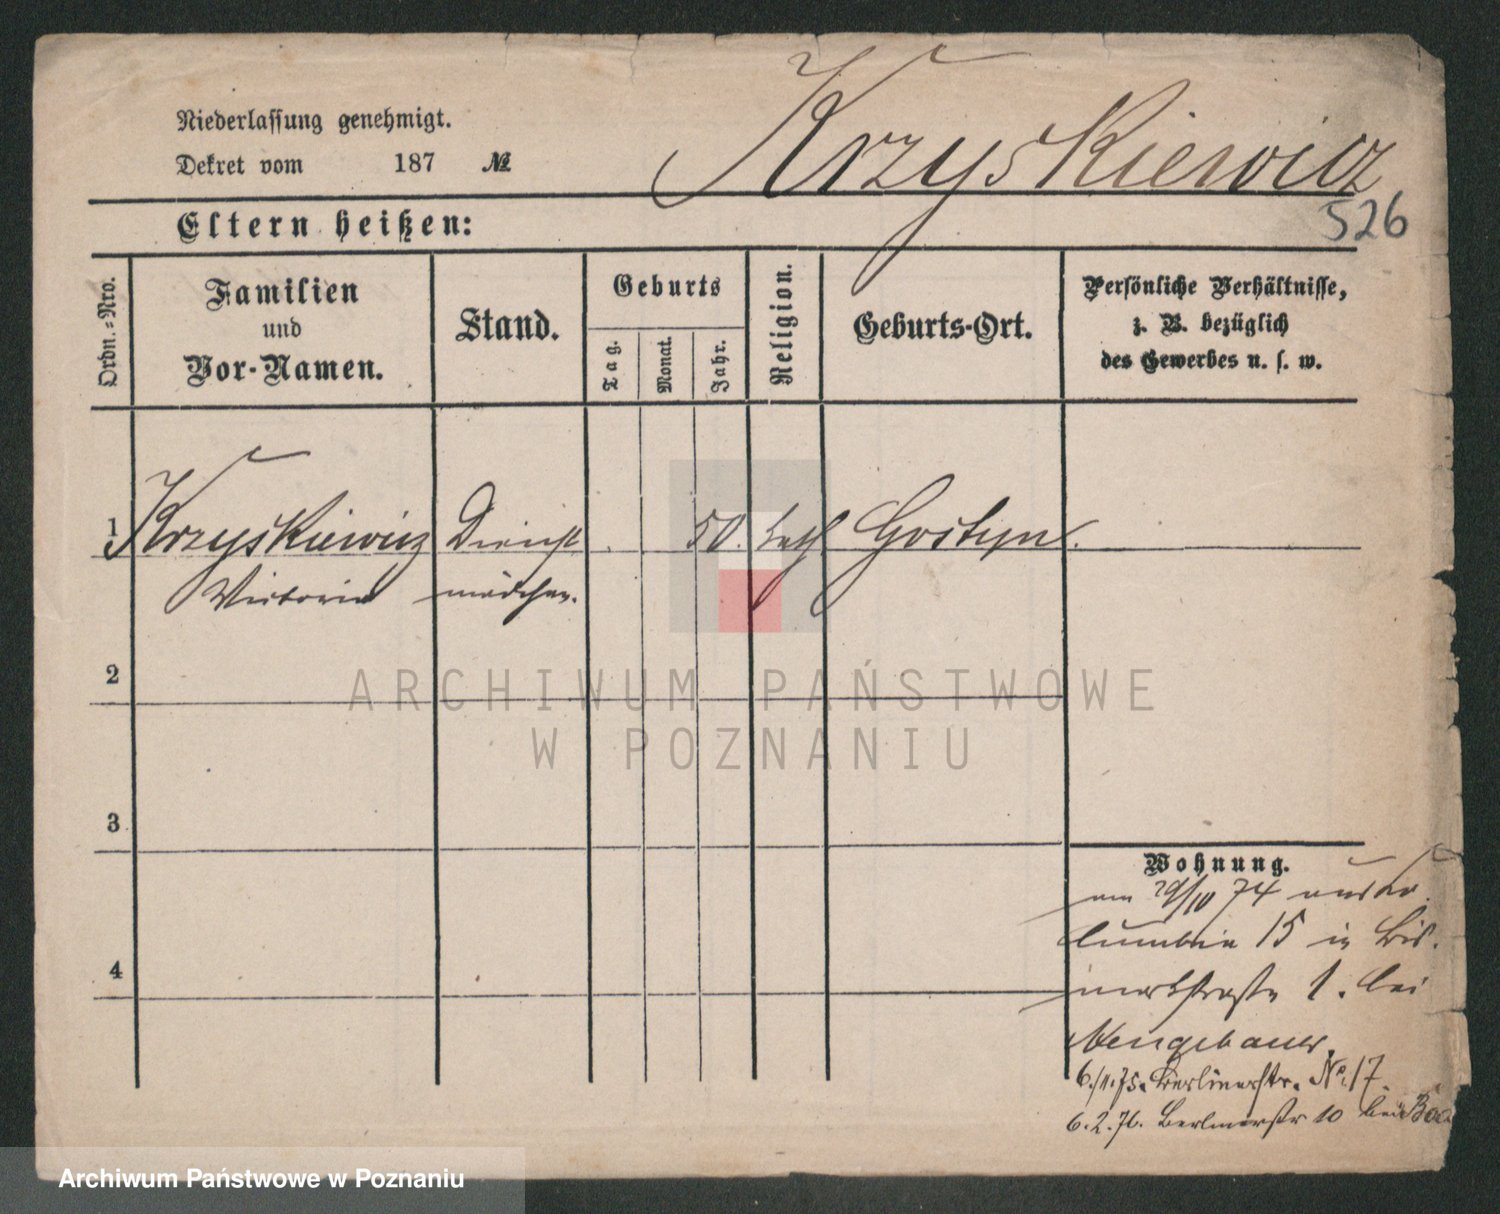 Krzyskiewicz
Niederlassung genehmigt.
Dekret vom 187 №
526
Eltern heißen:
Ordn.=Nro.
Familien
und
Vor-Namen.
Stand.
Geburts
Tag.
Monat.
Jahr.
Religion.
Geburts-Ort.
Persönliche Verhältnisse,
z. B. bezüglich
des Gewerbes u. s. w.
1 Krzyskiewicz Dienst 50. kath Gostyn.
Victoria mädchen.
2
ARCHIWUM PAŃSTWOWE
W POZNANIU
3
4
Wohnung.
am 29/10 74 aus
15 in Bis.
markstraße 1. bei
Neugebauer.
6./1.75. Berlinerstr. No. 17.
6.2.76. Berlinerstr 10 bei
Archiwum Państwowe w Poznaniu